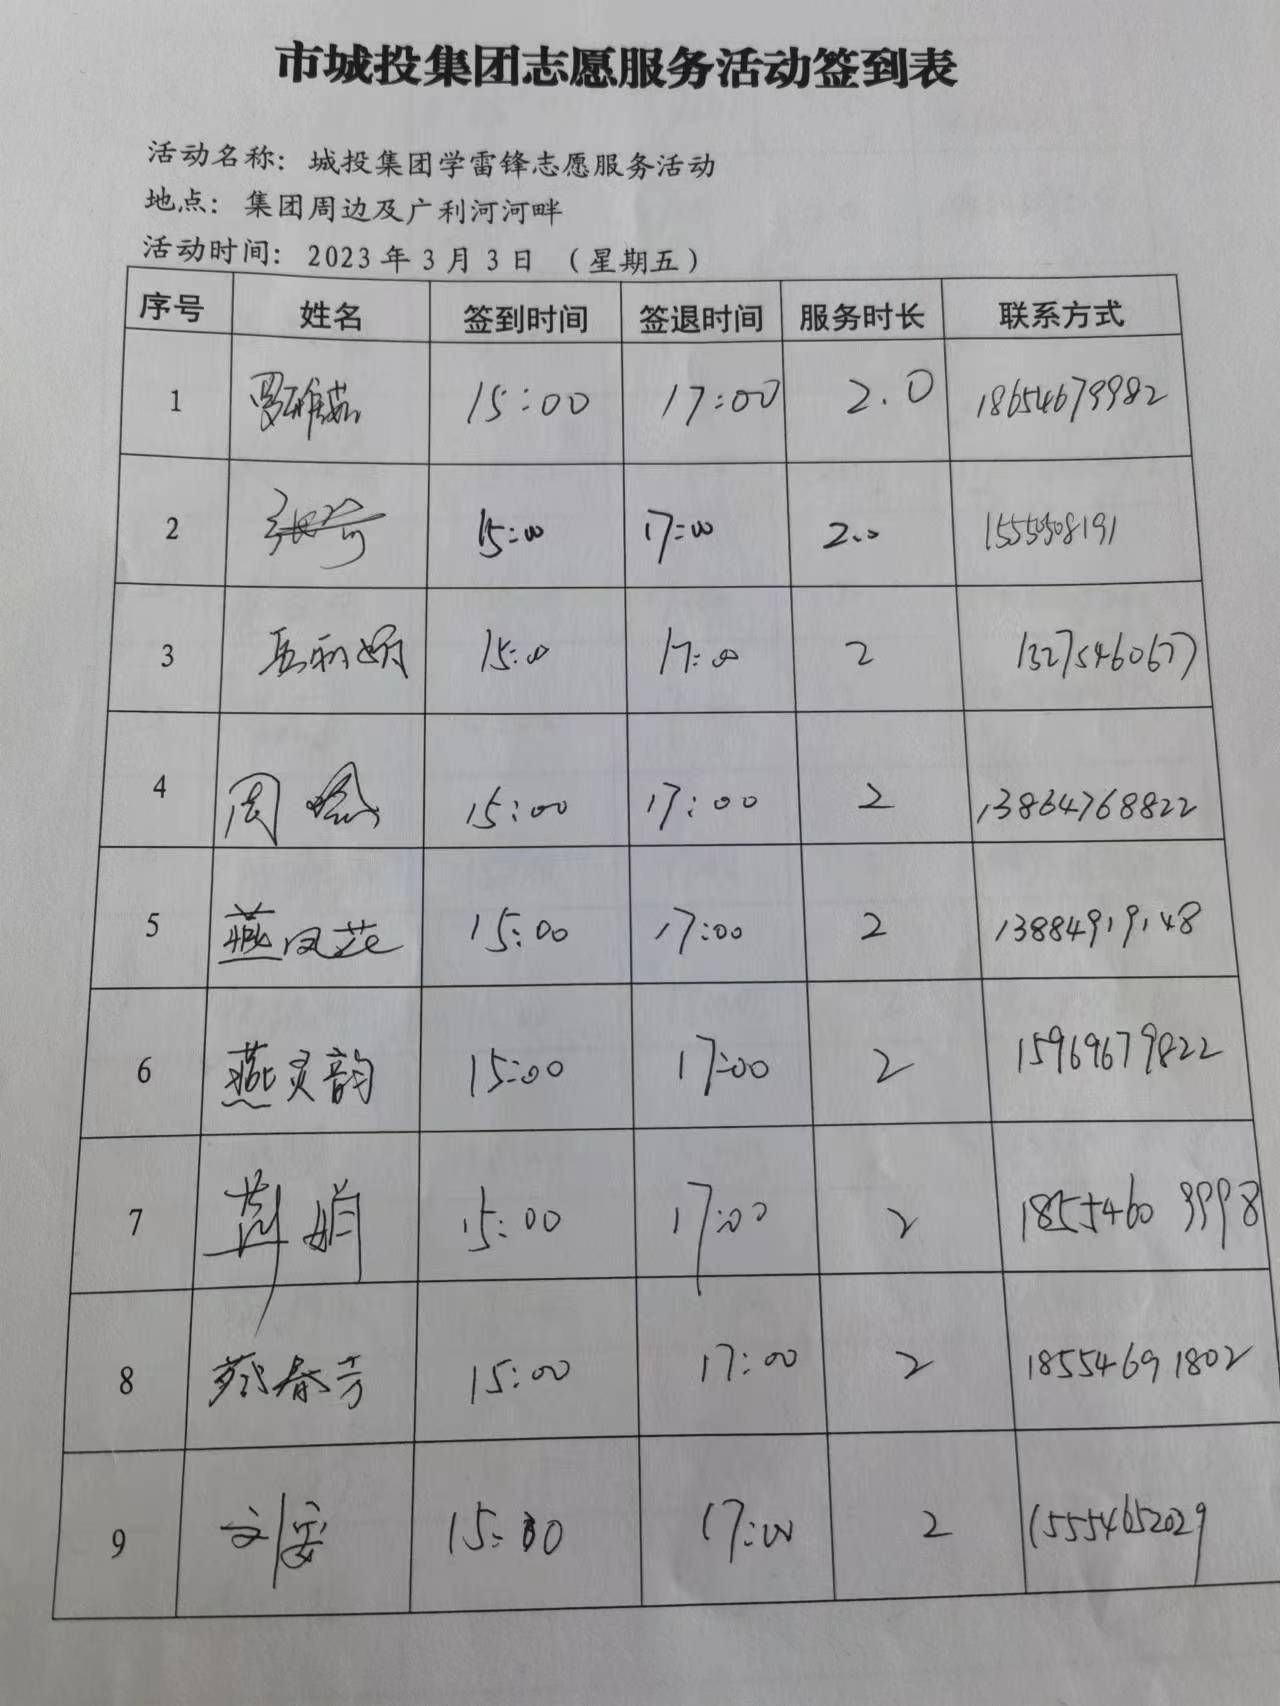 市城投集团志愿服务活动签到表
活动名称：城投集团学雷锋志愿服务活动
地点：集团周边及广利河河畔
活动时间：2023年3月3日 （星期五）
序号 姓名 签到时间 签退时间 服务时长 联系方式
1 15:00 17:00 2.0 18654679982
2 15:00 17:00 2.0 15550508191
3 15:00 17:00 2 13275460677
4 周 15:00 17:00 2 13864768822
5 燕凤花 15:00 17:00 2 13884919148
6 燕灵韵 15:00 17:00 2 15969679822
7 娟 15:00 17:00 2 18554609998
8 蔡春芳 15:00 17:00 2 18554691802
9 刘安 15:00 17:00 2 15554652029